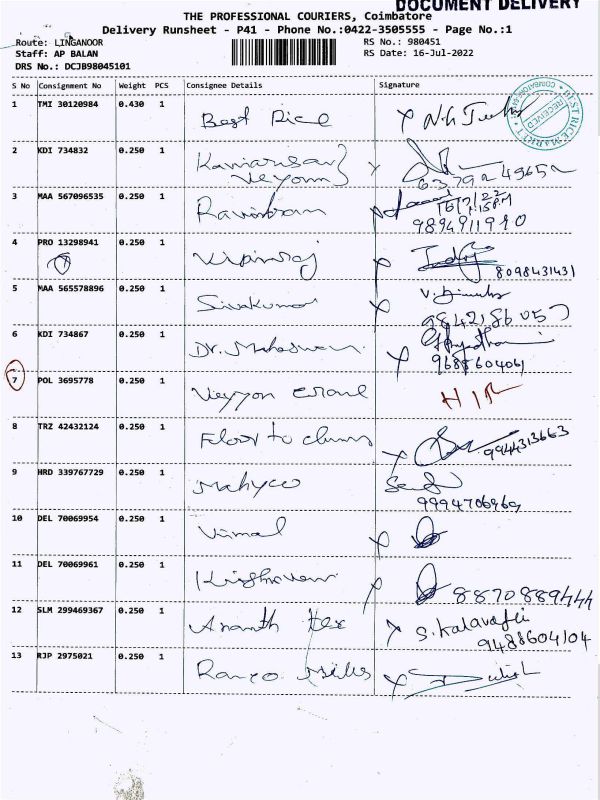 DOCUMENT DELIVERY
THE PROFESSIONAL COURIERS, Coimbatore
Delivery Runsheet - P41 - Phone No.:0422-3505555 - Page No.:1
Route: LINGANOOR RS No.: 980451
Staff: AP BALAN RS Date: 16-Jul-2022
DRS No.: DCJB98045101
S No Consignment No Weight PCS Consignee Details Signature
1 TMI 30120984 0.430 1 Best Rice
BEST RICE MARKET COIMBATORE RECEIVED
2 KDI 734832 0.250 1
3 MAA 567096535 0.250 1 16/7/22
1.15PM
9894911910
4 PRO 13298941 0.250 1 Vipinraj
8098431431
5 MAA 565578896 0.250 1 Sivakumar
9842186057
6 KDI 734867 0.250 1 Dr. Maheswari
9688604061
7 POL 3695778 0.250 1
8 TRZ 42432124 0.250 1
9944313663
9 HRD 339767729 0.250 1 Mahyco
9994706969
10 DEL 70069954 0.250 1 Vimal
11 DEL 70069961 0.250 1 Krishnaveni
8870889444
12 SLM 299469367 0.250 1 Ananth Tex S. Kalavathi
9488604104
13 RJP 2975021 0.250 1 Ranco Mills